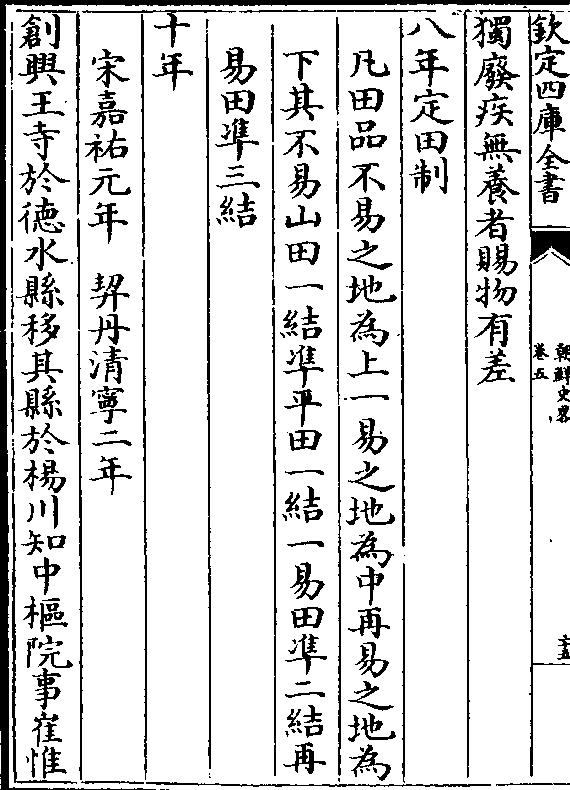 欽定四庫全書
朝鮮史畧
卷五
十五
獨廢疾無養者賜物有差
八年定田制
凡田品不易之地為上一易之地為中再易之地為
下其不易山田一結準平田一結一易田準二結再
易田準三結
十年
宋嘉祐元年　契丹清寧二年
創興王寺於徳水縣移其縣於楊川知中樞院事崔惟